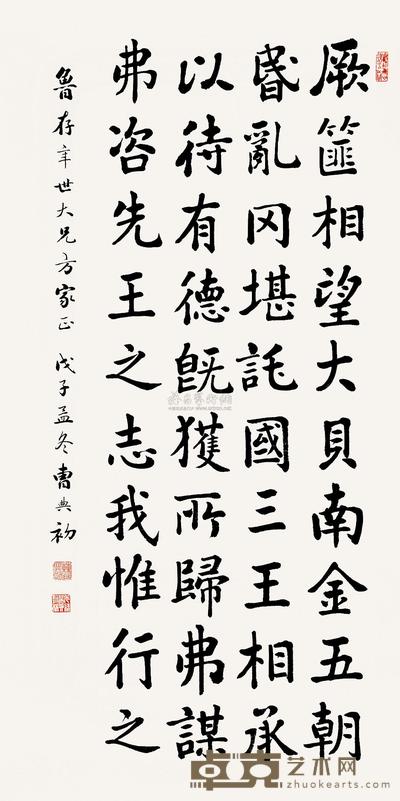 厥篚相望大貝南金五朝
昬亂罔堪託國三王相承
以待有德既獲所歸弗謀
弗咨先王之志我惟行之
魯存年世大兄方家正 戊子孟冬 曹典初
卓克艺术网
zhuokearts.com